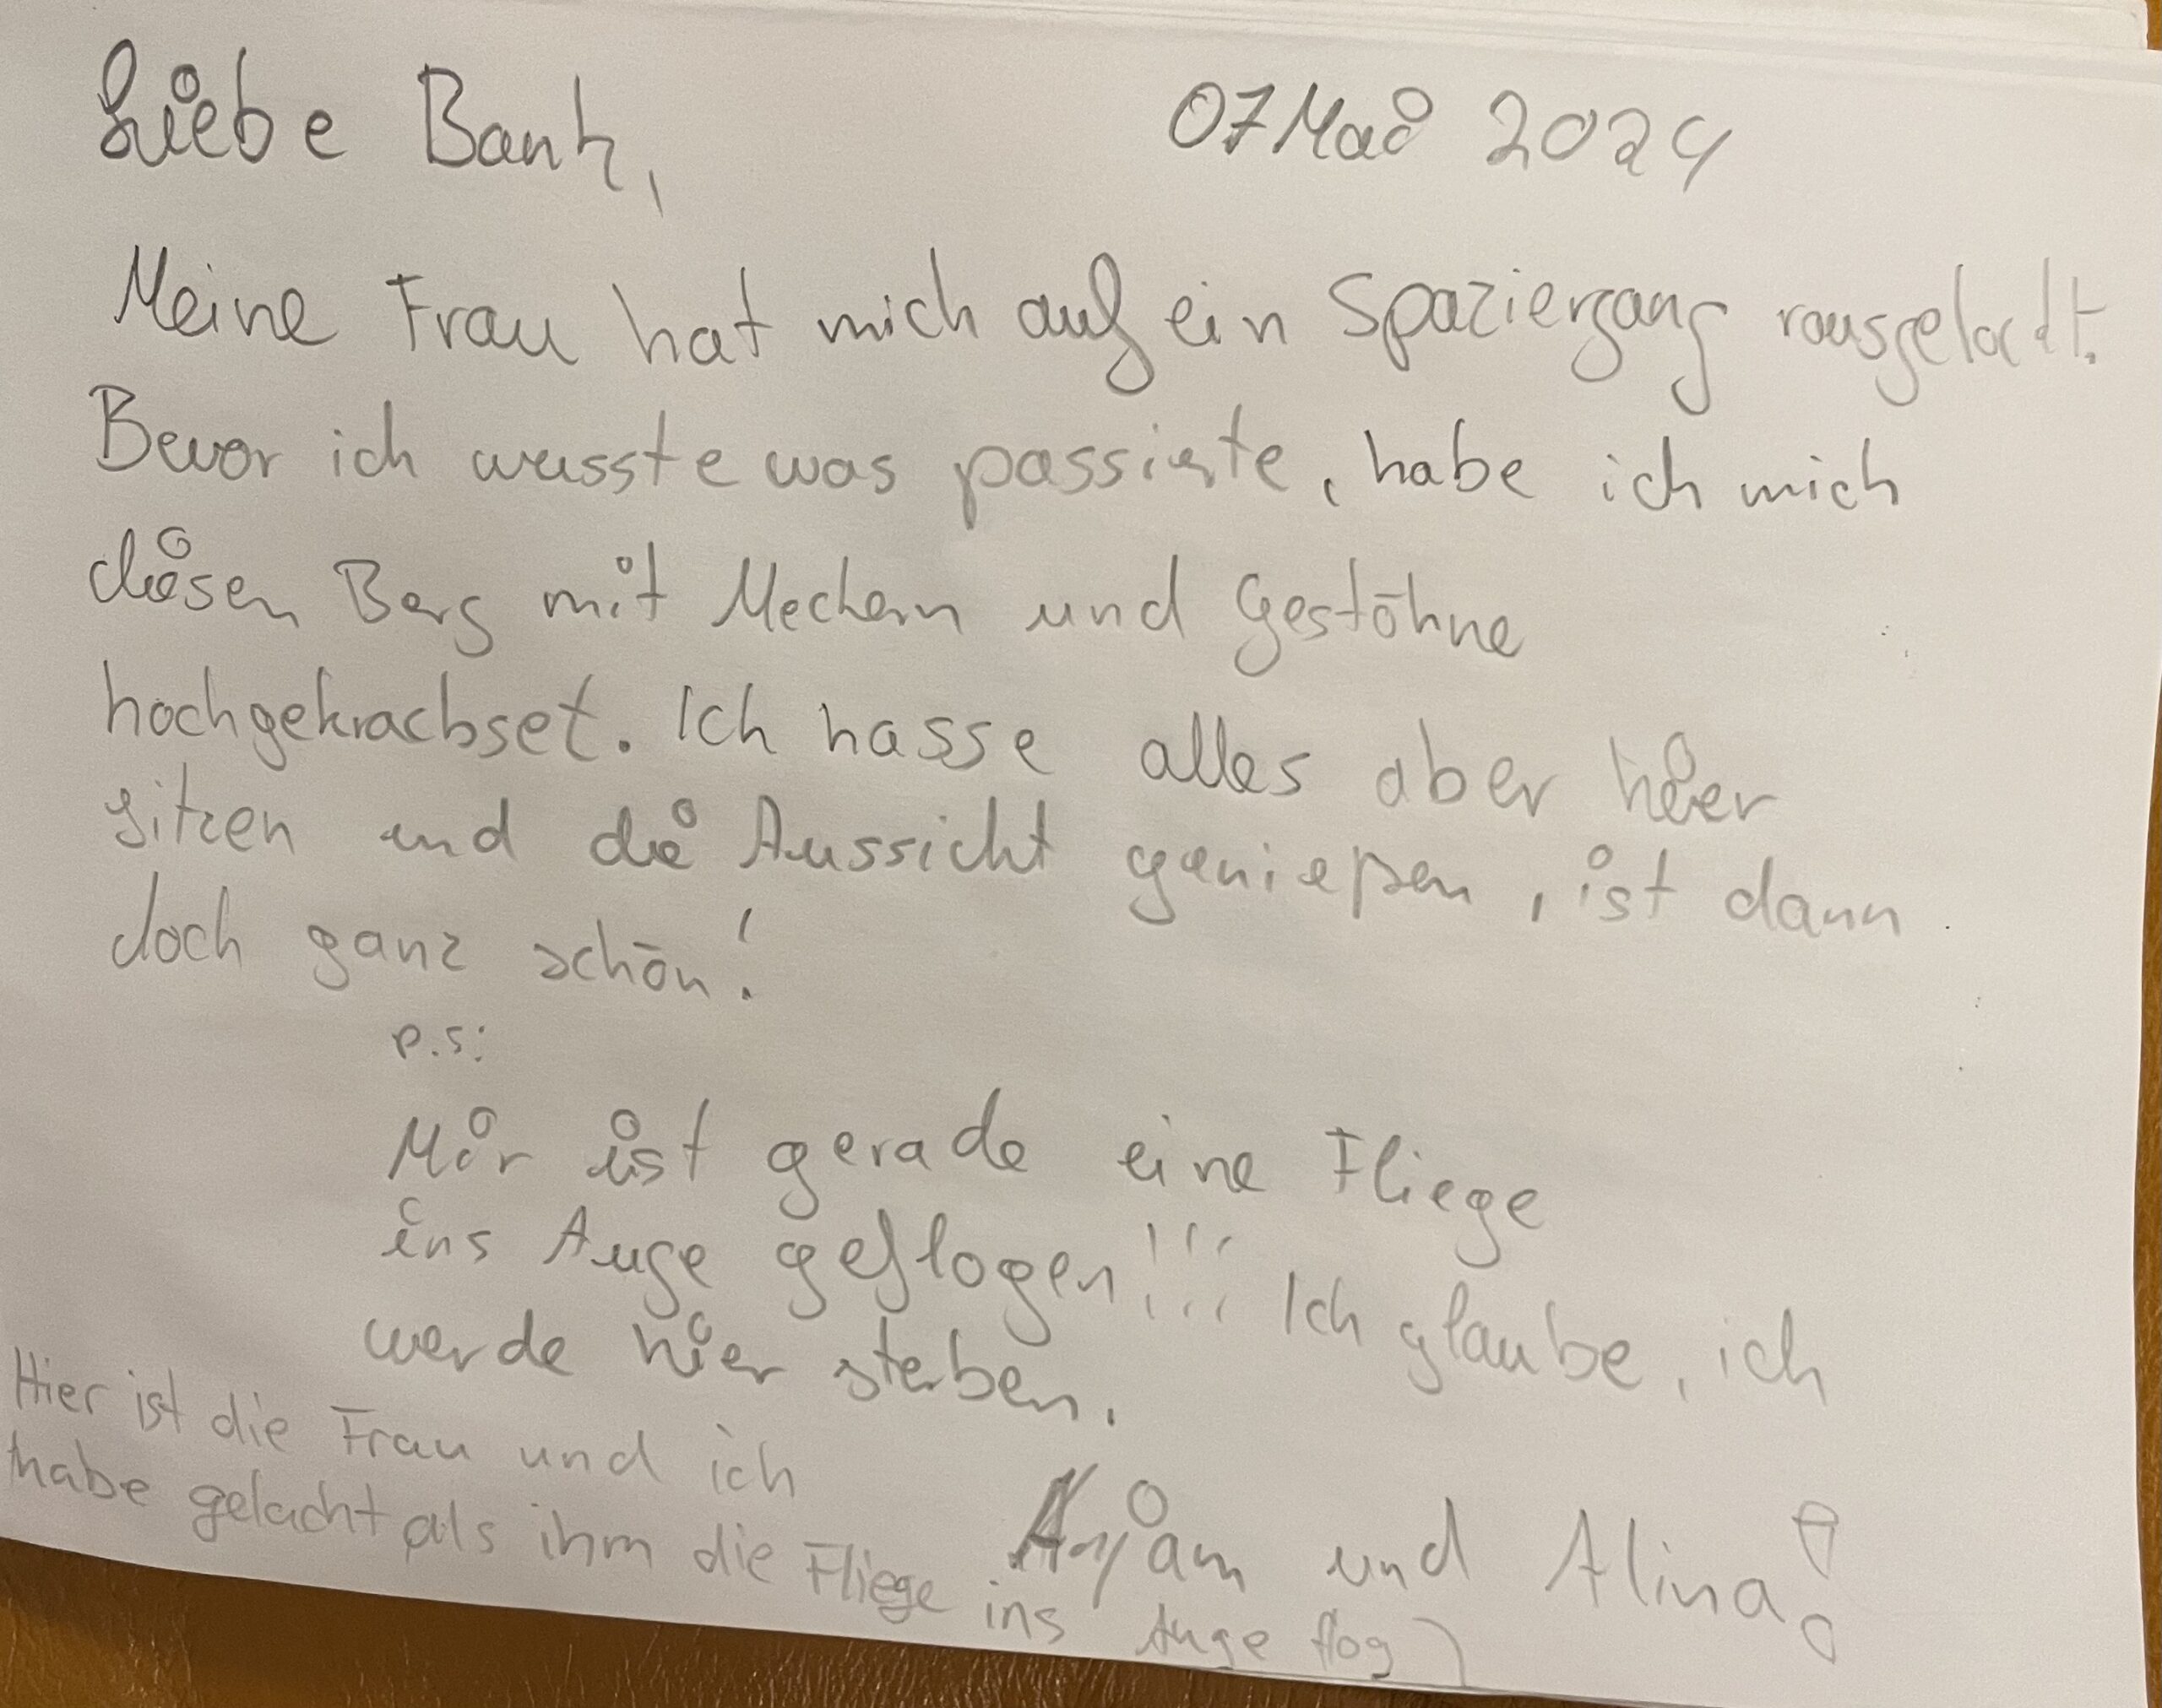 Liebe Bank,
07 Mai 2024
Meine Frau hat mich auf ein Spaziergang rausgelockt.
Bevor ich wusste was passierte, habe ich mich
diesen Berg mit Meckern und Gestöhne
hochgekrachset. Ich hasse alles aber hier
sitzen und die Aussicht genießen, ist dann
doch ganz schön!
p.s:
Mir ist gerade eine Fliege
ins Auge geflogen!!! Ich glaube, ich
werde hier sterben.
Hier ist die Frau und ich
habe gelacht als ihm die Fliege ins Auge flog)
und Alina!